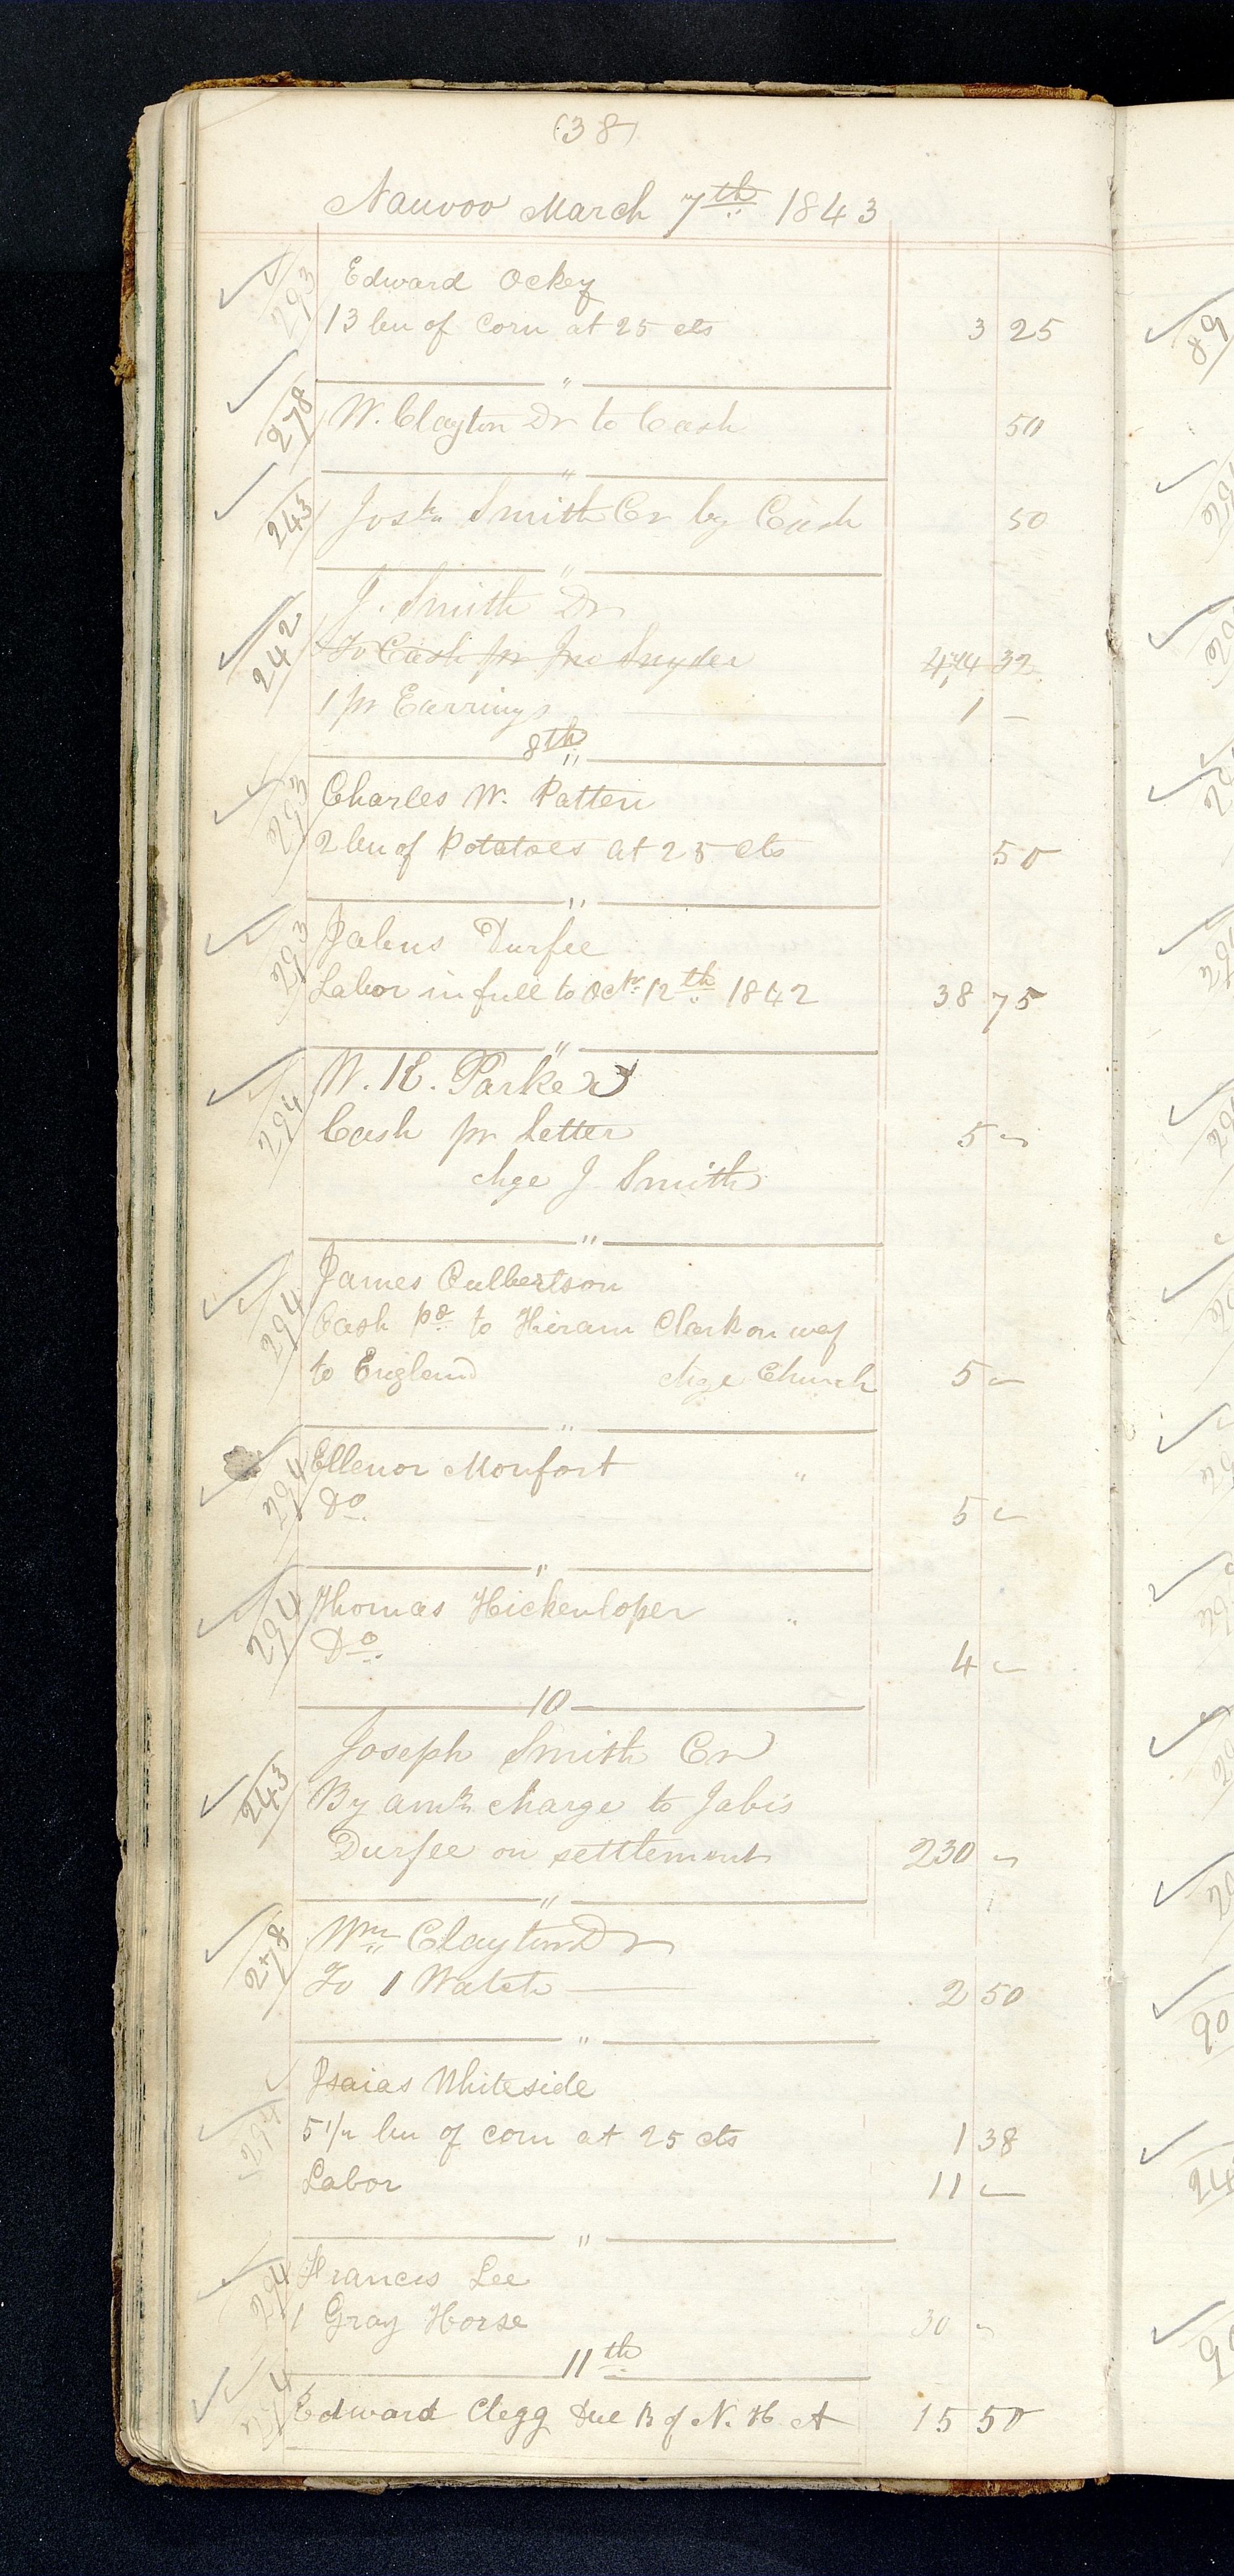 (38)
Nauvoo March 7th 1843
293 Edward Ockey
13 bu of Corn at 25 cts 3 25
"
278 W. Clayton Dr to Cash 50
"
243 Josh Smith Cr by Cash 50
"
J. Smith Dr
242 To Cash pr Jno Snyder 32
1 pr Earrings 1 –
8th
293 Charles W. Patten
2 bu of Potatoes at 25 cts 50
"
293 Jabus Durfee
Labor in full to Octr 12th 1842 38 75
"
294 W. K. Parker
Cash pr letter 5 –
chge J Smith
"
James Culbertson
294 Cash pd to Hiram Clark on way
to England chge Church 5 –
"
294 Ellenor Monfort "
Do. 5 –
"
294 Thomas Hickenloper "
Do. 4 –
10
Joseph Smith Cr
243 By amt charge to Jabis
Durfee on settlement 230 –
"
278 Wm Clayton Dr
To 1 Watch 2 50
"
Isaias Whiteside
294 5 1/2 bu of corn at 25 cts 1 38
Labor 11 –
"
294 Francis Lee
1 Gray Horse 30 –
11th
294 Edward Clegg Due B of N. H A 15 50